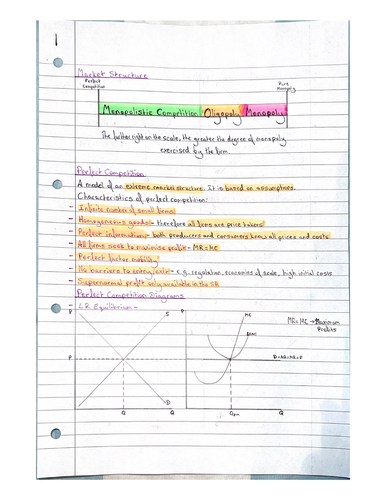 1
Market Structure
Perfect Competition
Pure Monopoly
Monopolistic Competition Oligopoly Monopoly
The further right on the scale, the greater the degree of monopoly
exercised by the firm.
Perfect Competition
A model of an extreme market structure. It is based on assumptions.
Characteristics of perfect competition:
- Infinite number of small firms
- Homogeneous goods - therefore all firms are price takers
- Perfect information - both producers and consumers know all prices and costs
- All firms seek to maximise profit - MR=MC
- Perfect factor mobility
- No barriers to entry/exit - e.g. regulation, economies of scale, high initial costs
- Supernormal profit only available in the SR
Perfect Competition Diagrams
- LR Equilibrium -
P S P MC
AC
MR=MC → Maximum
Profits
P P D=AR=MR=P
D
Q Q Q